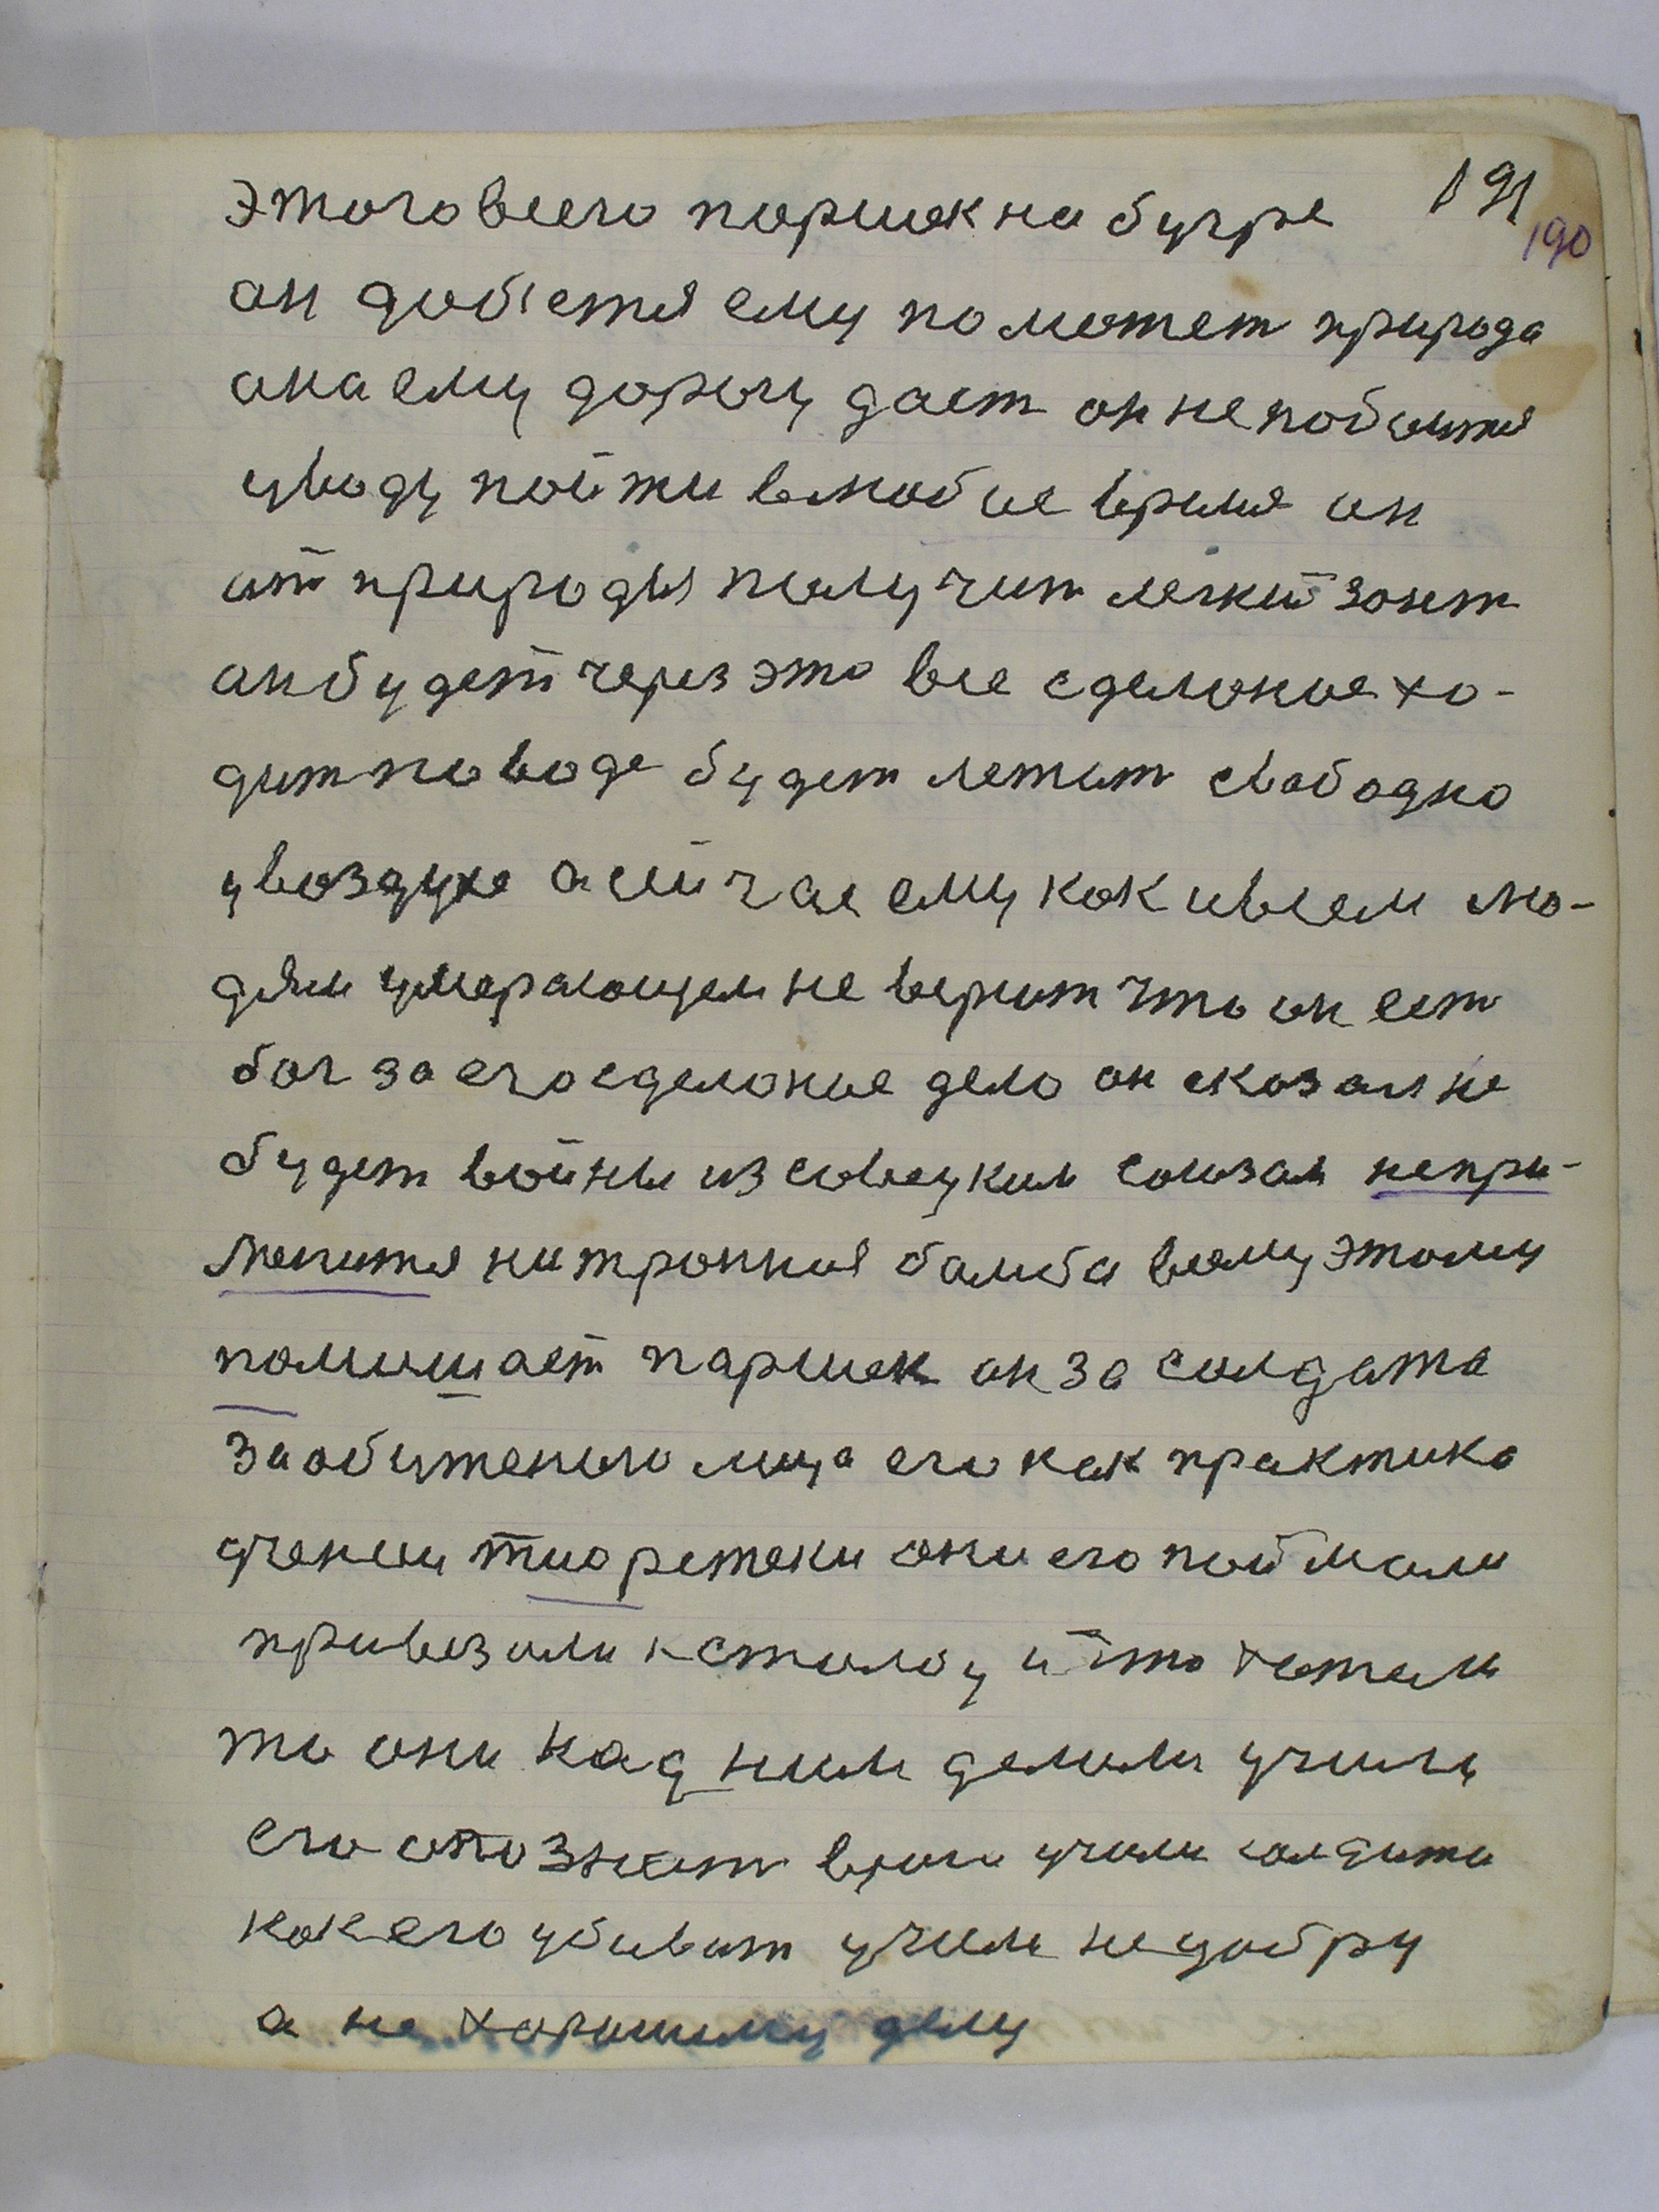 этого всего паршек на бугре 191
190
он добется ему поможет природа
она ему дорогу дает он не побоится
уводу пойти влюбое время он
от природы получит легкий зонт
он будет через это все сделоное хо-
дит по воде будет летат свабодно
увоздухе а сичас ему как ивсем лю-
дям умерающем не верит что он ест
бог за его сделоное дело он сказал не
будет войны из совецким союзам непри-
менится нитронная бамба всему этому
помишает паршек он за солдата
за обиженого лица его как практика
ученаи тиоретеки они его поймали
привезали к столо у и что хотели
то они над ним делали учили
его опознат врага учили солдата
как его убиват учили не добру
а не хорошиму делу